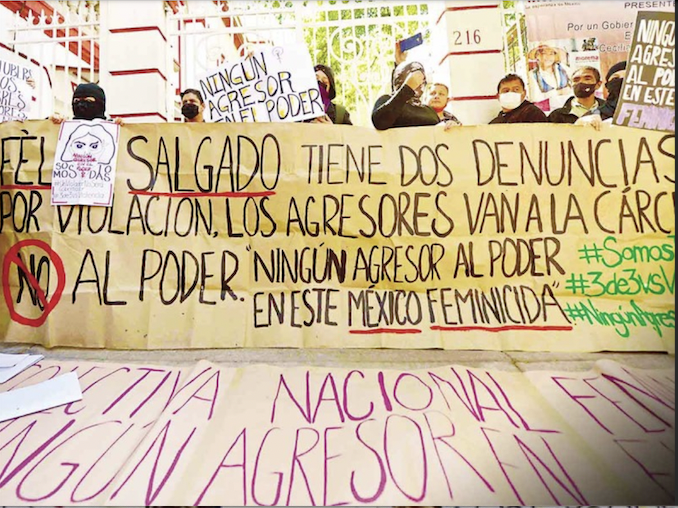 216
PRESENTE
Por un Gobier
morena
NINGÚN
AGRESOR
EN EL PODER
NINGÚN
AGRESOR
AL PODER
EN ESTE
FEMINI
SOMOS
MOS DAS
FÈL SALGADO TIENE DOS DENUNCIAS
POR VIOLACIÓN, LOS AGRESORES VAN A LA CÁRC
NO AL PODER. "NINGÚN AGRESOR AL PODER
EN ESTE MÉXICO FEMINICIDA"
#Somos
#3de3vsV
#NingúnAgres
COLECTIVA NACIONAL FEM
NINGÚN AGRESOR EN E